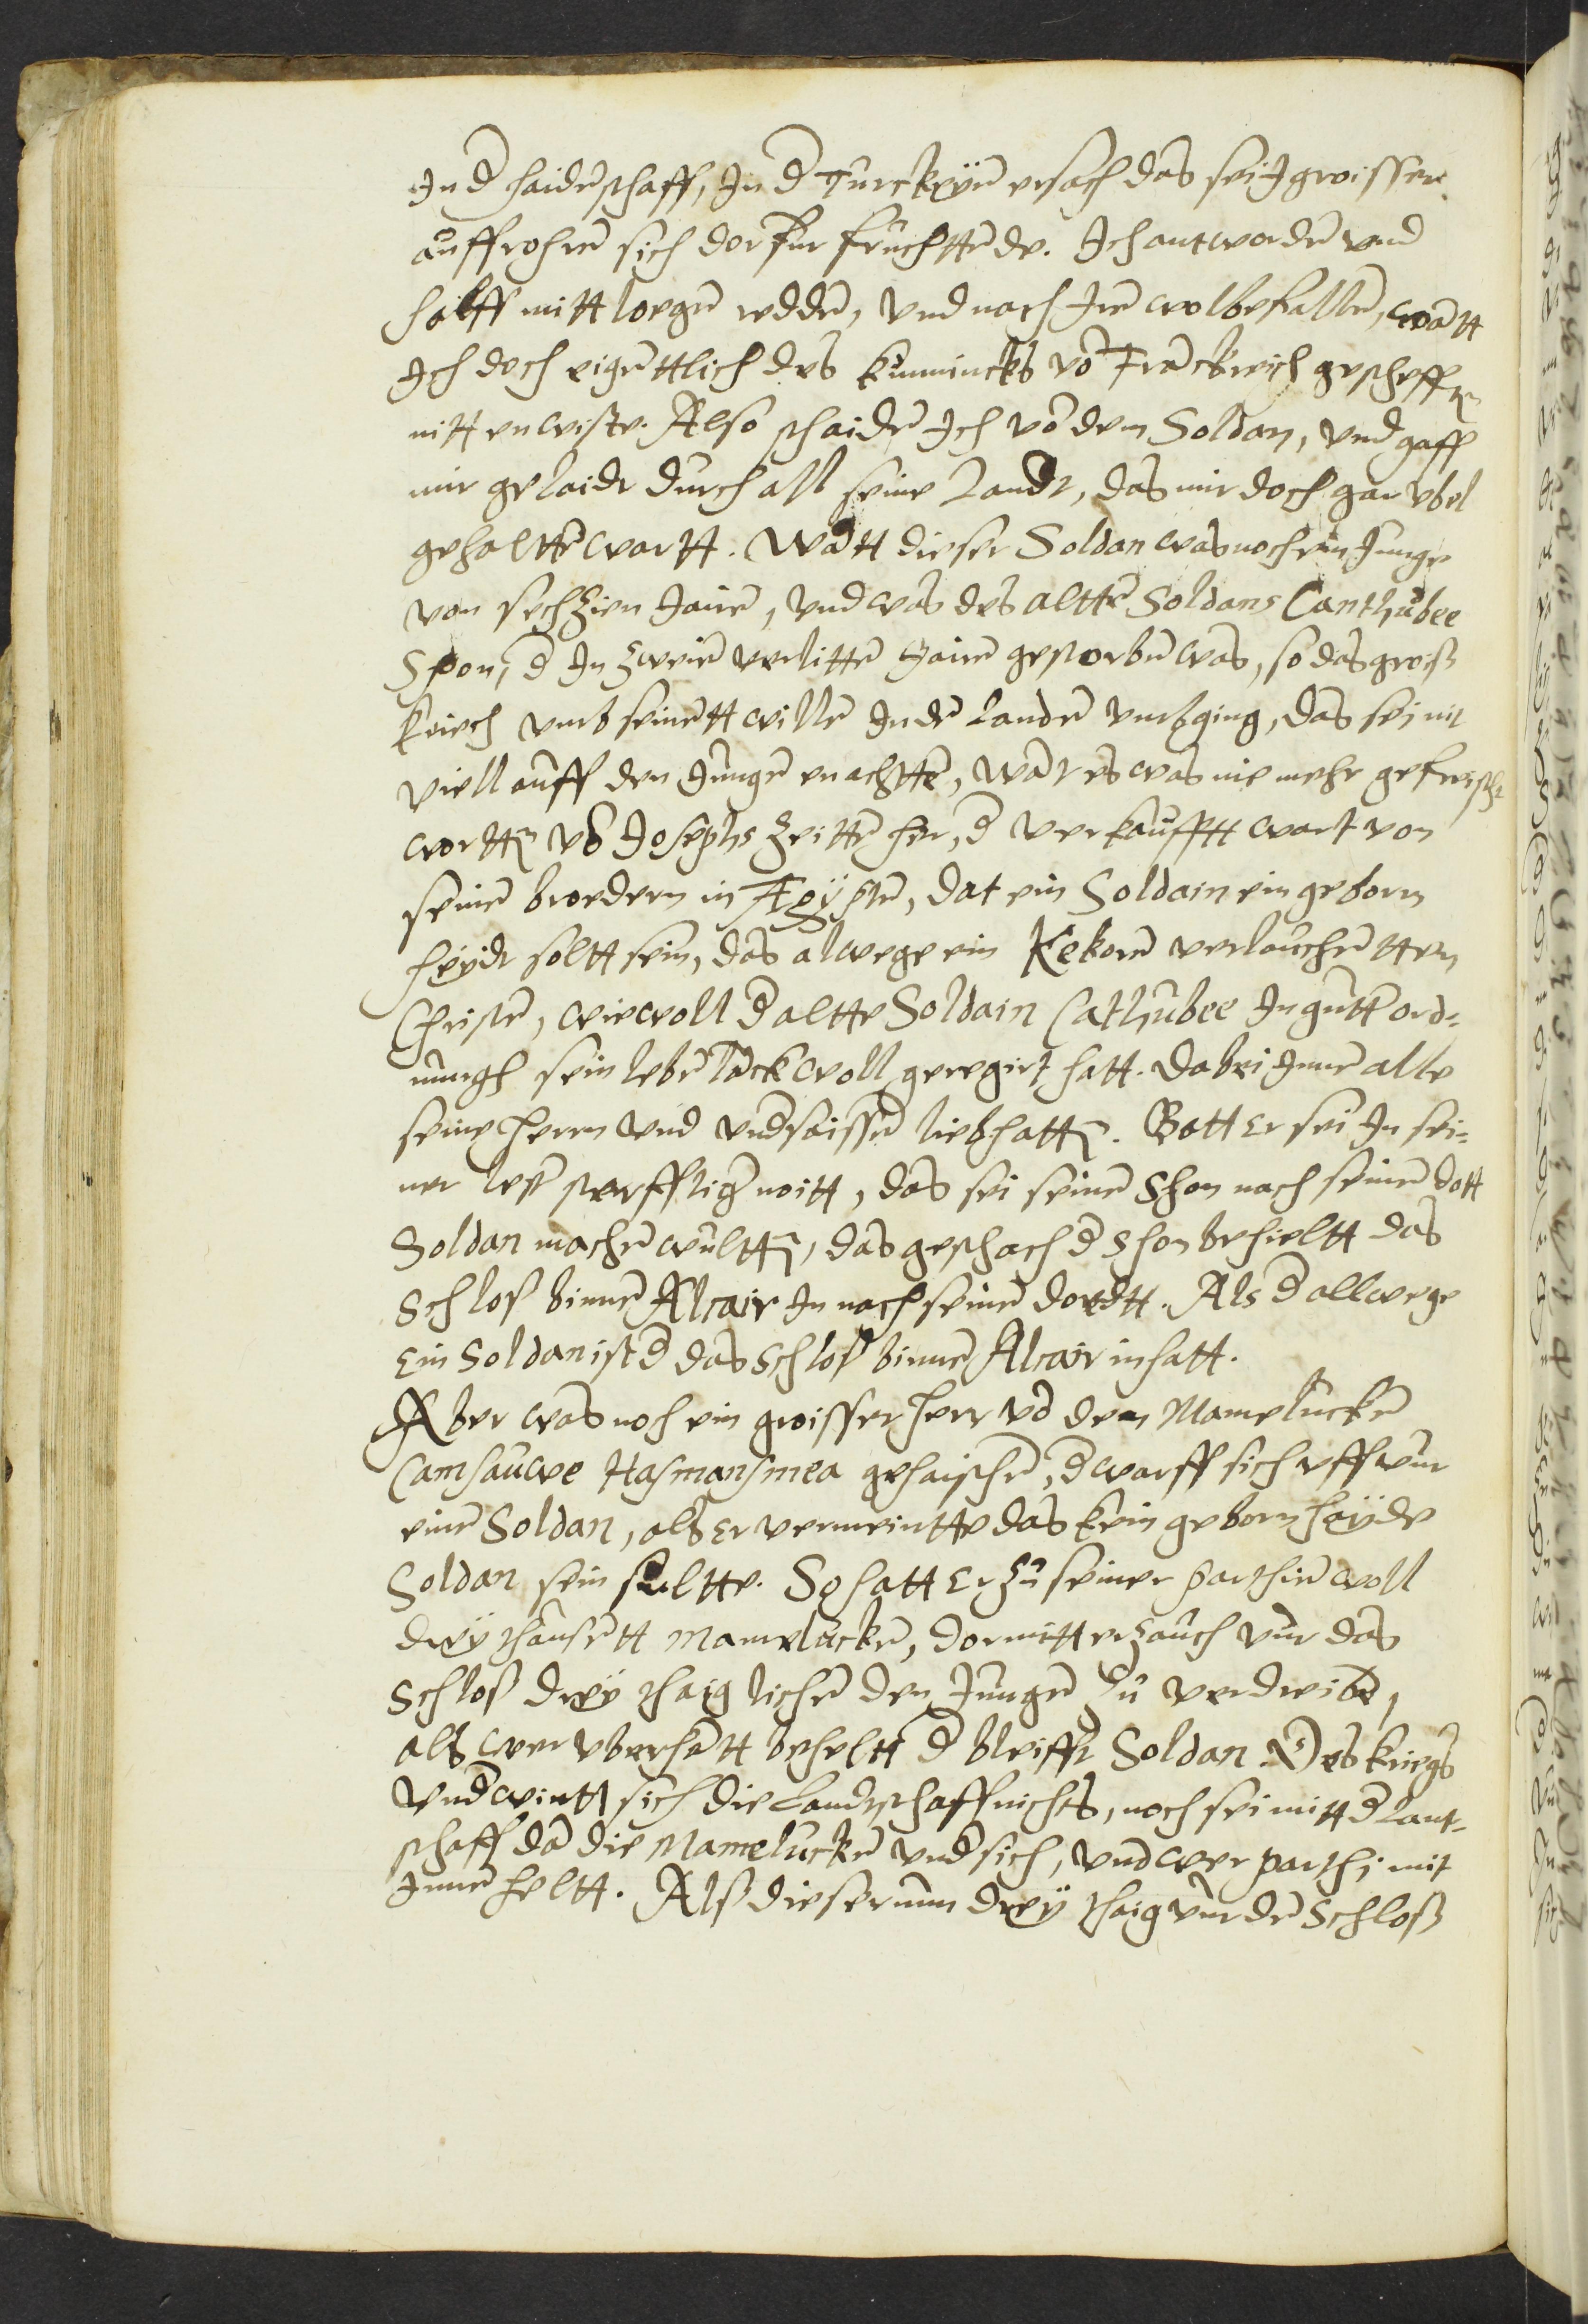 In d haidēschaff, In d Turckeyē ersach das sei I groisser
auffrohrē sich dor fur fruchttēde. Ich antwordē vnd
halff mitt loegē reddē, vnd nach Irē wolbefallē, wātt
Ich doch eigēttlich des kunnincks vō Franckreich gescheffte
nitt en wiste. Also schaidē Ich vō dem Soldan, vnd gaff
mir gelaide durch all seine Landt, das mir doch gar vbel
gehalttē wartt. Wātt dieser Soldan was noch ein Junge
von sechzien Jairē, vnd was des alttē Soldans Canthubee
Shon, d In zweiē verlittē Jairē gestorbē was, so das groiß
kriech vmb seinētt willē In dē landē vmbging, das sei nit
viell auff den Jungē en achttē, wāt es was nie mehr gefrischt
wortē vō Josephs zeittē her, d verkaufftt wart von
seinē broedern in Egÿptē, dat ein Soldain ein geborn
heyde soltt sein, das alwege ein kekorē verlauchē tten
Christē, wiewoll d altte Soldain Cathubee In guttē ord=
nungh sein lebē lāck woll geregirt hatt. Dabei Innē alle
seine herrn vnd vndsaissē lieb hattē. Batt er sei In sei=
ner lestē sterfflichē noitt, das sei seinē Shon nach seinē dott
Soldan machē wulttē, das geschach d Shon behieltt das
Schloß binnē Alcair In nach seinē doedtt. Als d allwege
Ein Soldan ist d das Schloß binnē Alcair inhatt.
Aber was noch ein groisser herr vō den Mamelucken
Camsauwe Hasmansmea gehaischē, d warff sich vff vur
einē Soldan, als er vermeintte das kein geborn heyde
Soldan sein sultte. So hatt er zu seiner parthiē woll
drey thausētt Mameluckē, dormitt er zauch vur das
Schloß drey thaig lichē den Jungē zu verdreibē,
als wer vberhātt beheltt d bleifft Soldan. Des kriegs
vndwintt sich die Landtschaff nichts, noch sei mitt d lant=
schaff dā die Mameluckē vnd sich, vnd wer parthi mit
Innē heltt. Alß dieser nun drey thaig vur dē Schloß